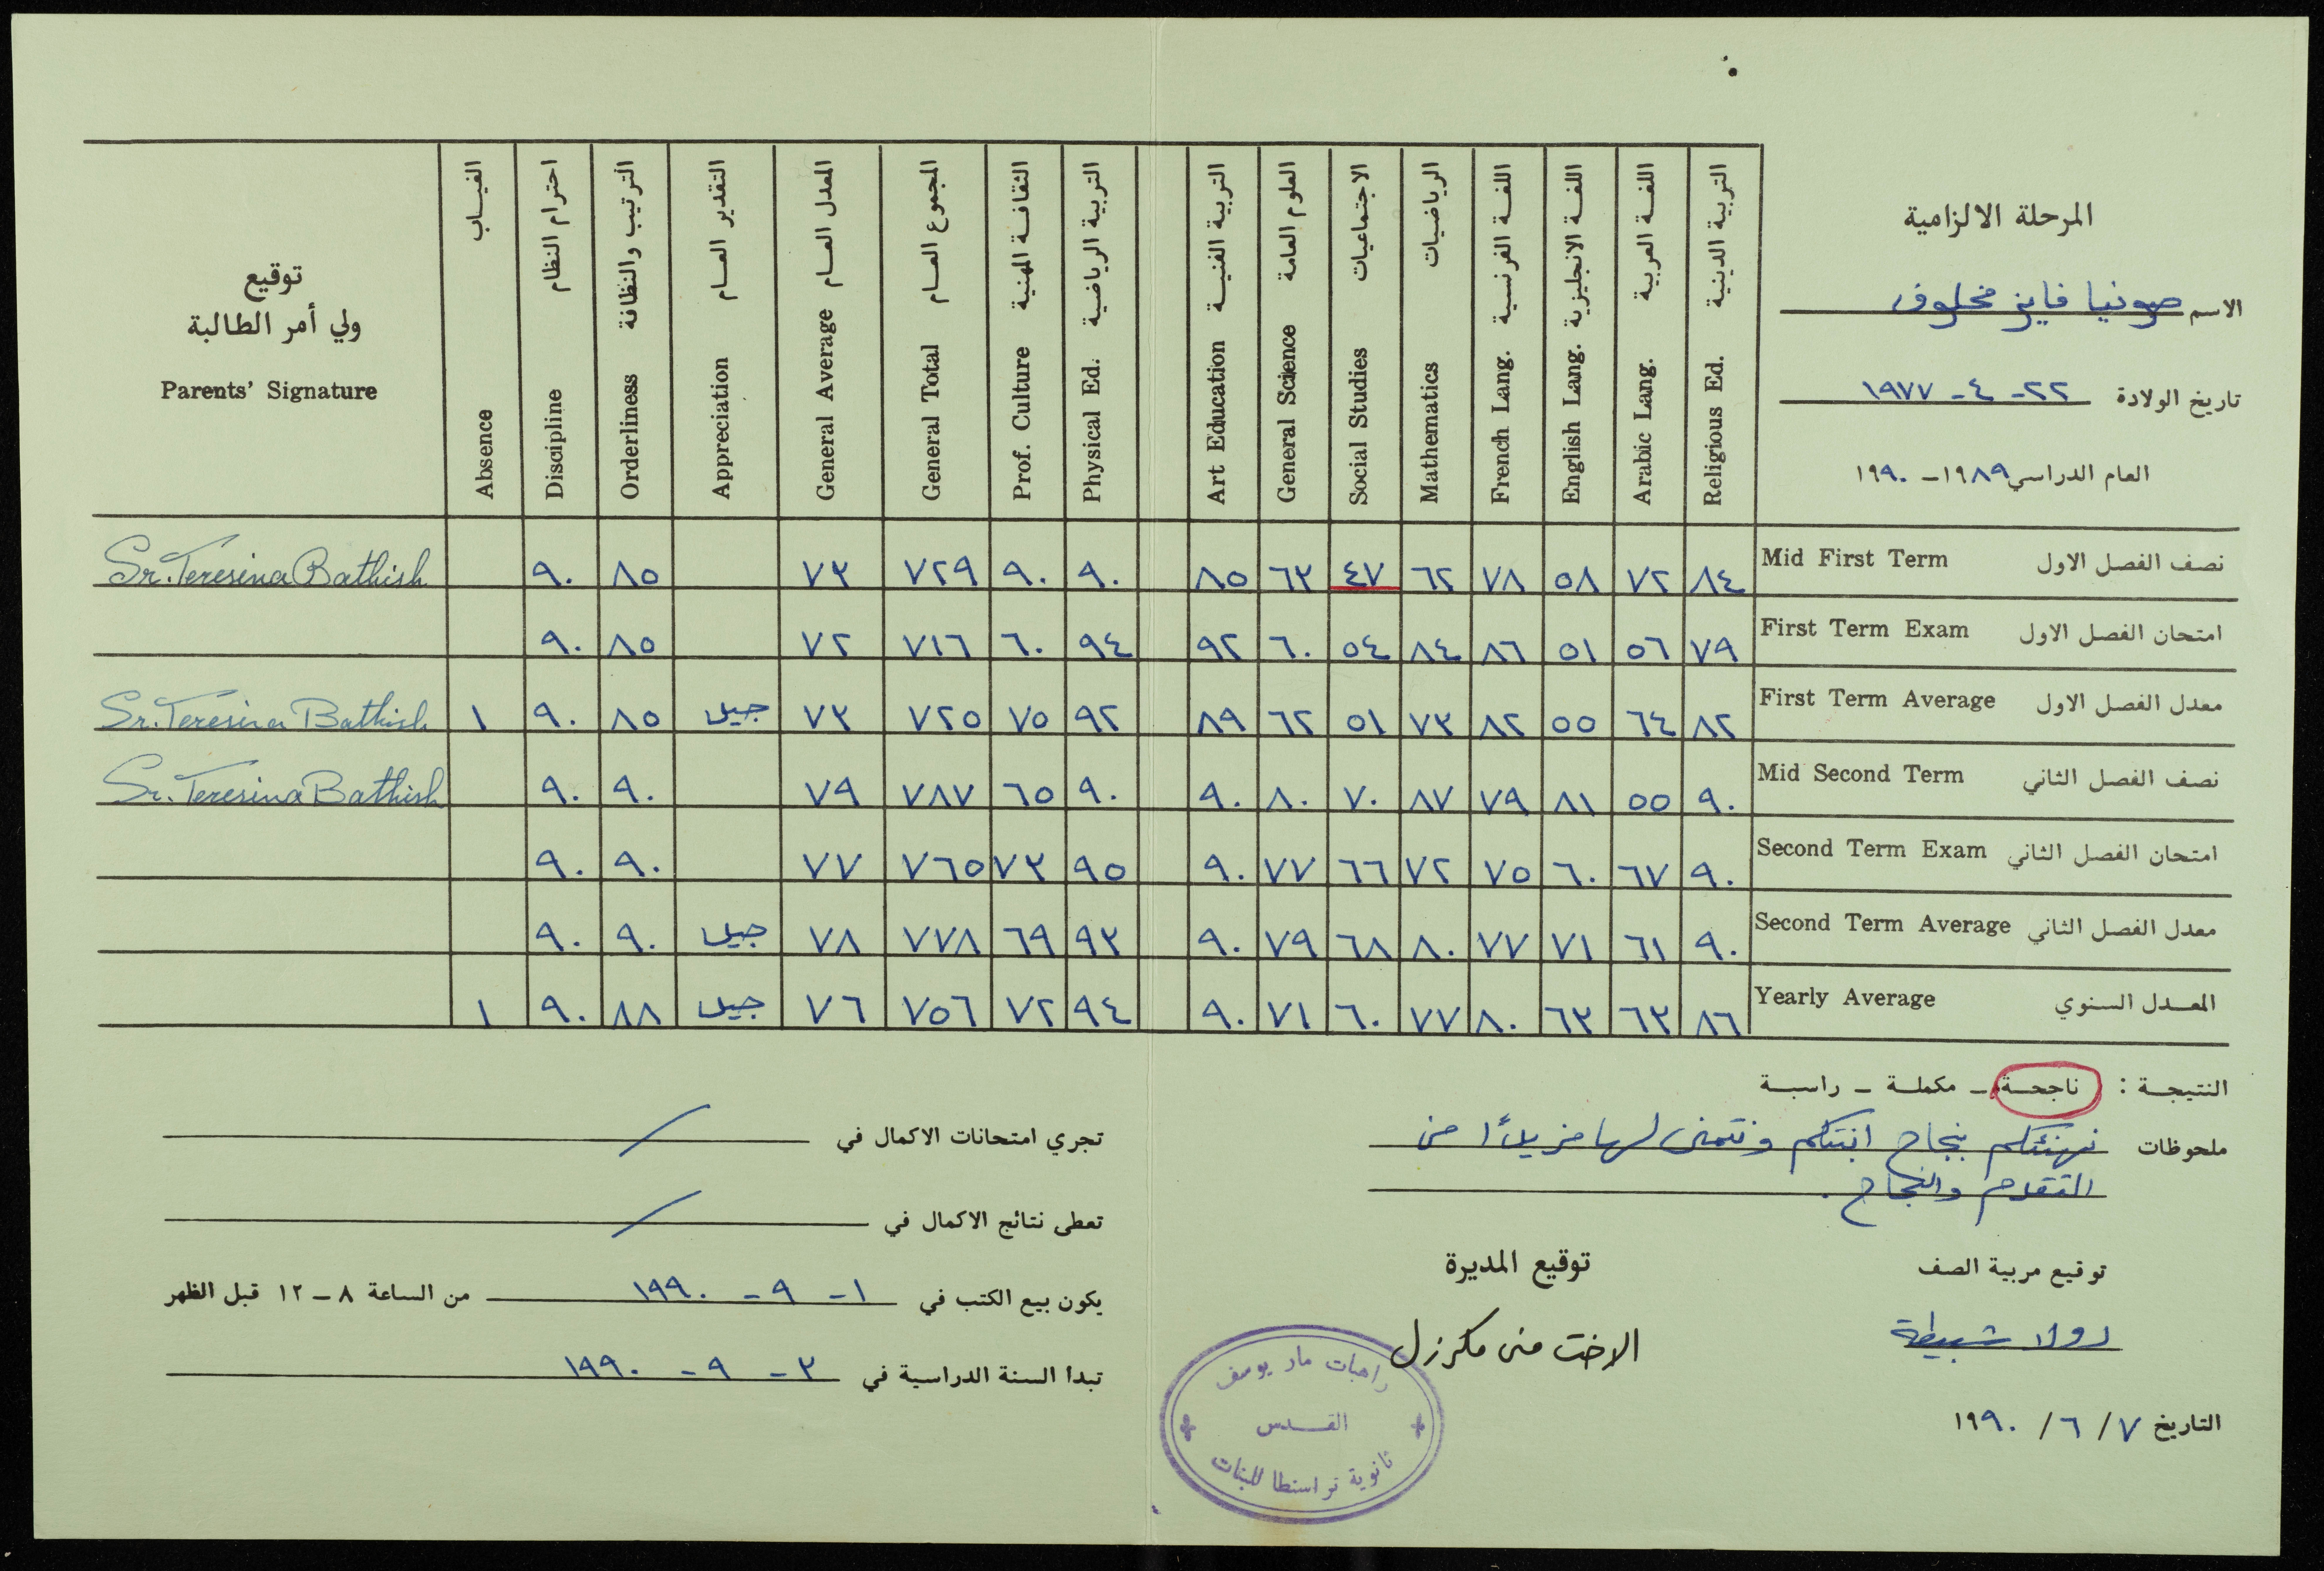 المرحلة الالزامية
الاسم صونيا فايز مخلوف
تاريخ الولادة ٢٢ - ٤ - ١٩٧٧
العام الدراسي ١٩٨٩ - ١٩٩٠
التربية الدينية Religious Ed.
اللغة العربية Arabic Lang.
اللغة الانجليزية English Lang.
اللغة الفرنسية French Lang.
الرياضيات Mathematics
الاجتماعيات Social Studies
العلوم العامة General Science
التربية الفنية Art Education
التربية الرياضية Physical Ed.
الثقافة المهنية Prof. Culture
المجموع العام General Total
المعدل العام General Average
التقدير العام Appreciation
الترتيب والنظافة Orderliness
احترام النظام Discipline
الغياب Absence
توقيع
ولي أمر الطالبة
Parents' Signature
نصف الفصل الاول Mid First Term ٨٤ ٧٢ ٥٨ ٧٨ ٦٢ ٤٧ ٦٣ ٨٥ ٩٠ ٩٠ ٧٢٩ ٧٣ ٨٥ ٩٠ Sr. Teresina Bathish
امتحان الفصل الاول First Term Exam ٧٩ ٥٦ ٥١ ٨٦ ٨٤ ٥٤ ٦٠ ٩٢ ٩٤ ٦٠ ٧١٦ ٧٢ ٨٥ ٩٠
معدل الفصل الاول First Term Average ٨٢ ٦٤ ٥٥ ٨٢ ٧٣ ٥١ ٦٢ ٨٩ ٩٢ ٧٥ ٧٢٥ ٧٣ جيد ٨٥ ٩٠ ١ Sr. Teresina Bathish
نصف الفصل الثاني Mid Second Term ٩٠ ٥٥ ٨١ ٧٩ ٨٧ ٧٠ ٨٠ ٩٠ ٩٠ ٦٥ ٧٨٧ ٧٩ ٩٠ ٩٠ Sr. Teresina Bathish
امتحان الفصل الثاني Second Term Exam ٩٠ ٦٧ ٦٠ ٧٥ ٧٢ ٦٦ ٧٧ ٩٠ ٩٥ ٧٣ ٧٦٥ ٧٧ ٩٠ ٩٠
معدل الفصل الثاني Second Term Average ٩٠ ٦١ ٧١ ٧٧ ٨٠ ٦٨ ٧٩ ٩٠ ٩٣ ٦٩ ٧٧٨ ٧٨ جيد ٩٠ ٩٠
المعدل السنوي Yearly Average ٨٦ ٦٣ ٦٣ ٨٠ ٧٧ ٦٠ ٧١ ٩٠ ٩٤ ٧٢ ٧٥٦ ٧٦ جيد ٨٨ ٩٠ ١
النتيجة : ناجحة - مكملة - راسبة
ملحوظات نهنئكم بنجاح ابنتكم ونتمنى لها مزيدًا من
التقدم والنجاح .
توقيع مربية الصف
رولا شبيطة
توقيع المديرة
الاخت منى مكرزل
التاريخ ٧ / ٦ / ١٩٩٠
راهبات مار يوسف
القدس
ثانوية تراسنطا للبنات
تجري امتحانات الاكمال في /
تعطى نتائج الاكمال في /
يكون بيع الكتب في ١ - ٩ - ١٩٩٠ من الساعة ٨ - ١٢ قبل الظهر
تبدا السنة الدراسية في ٣ - ٩ - ١٩٩٠